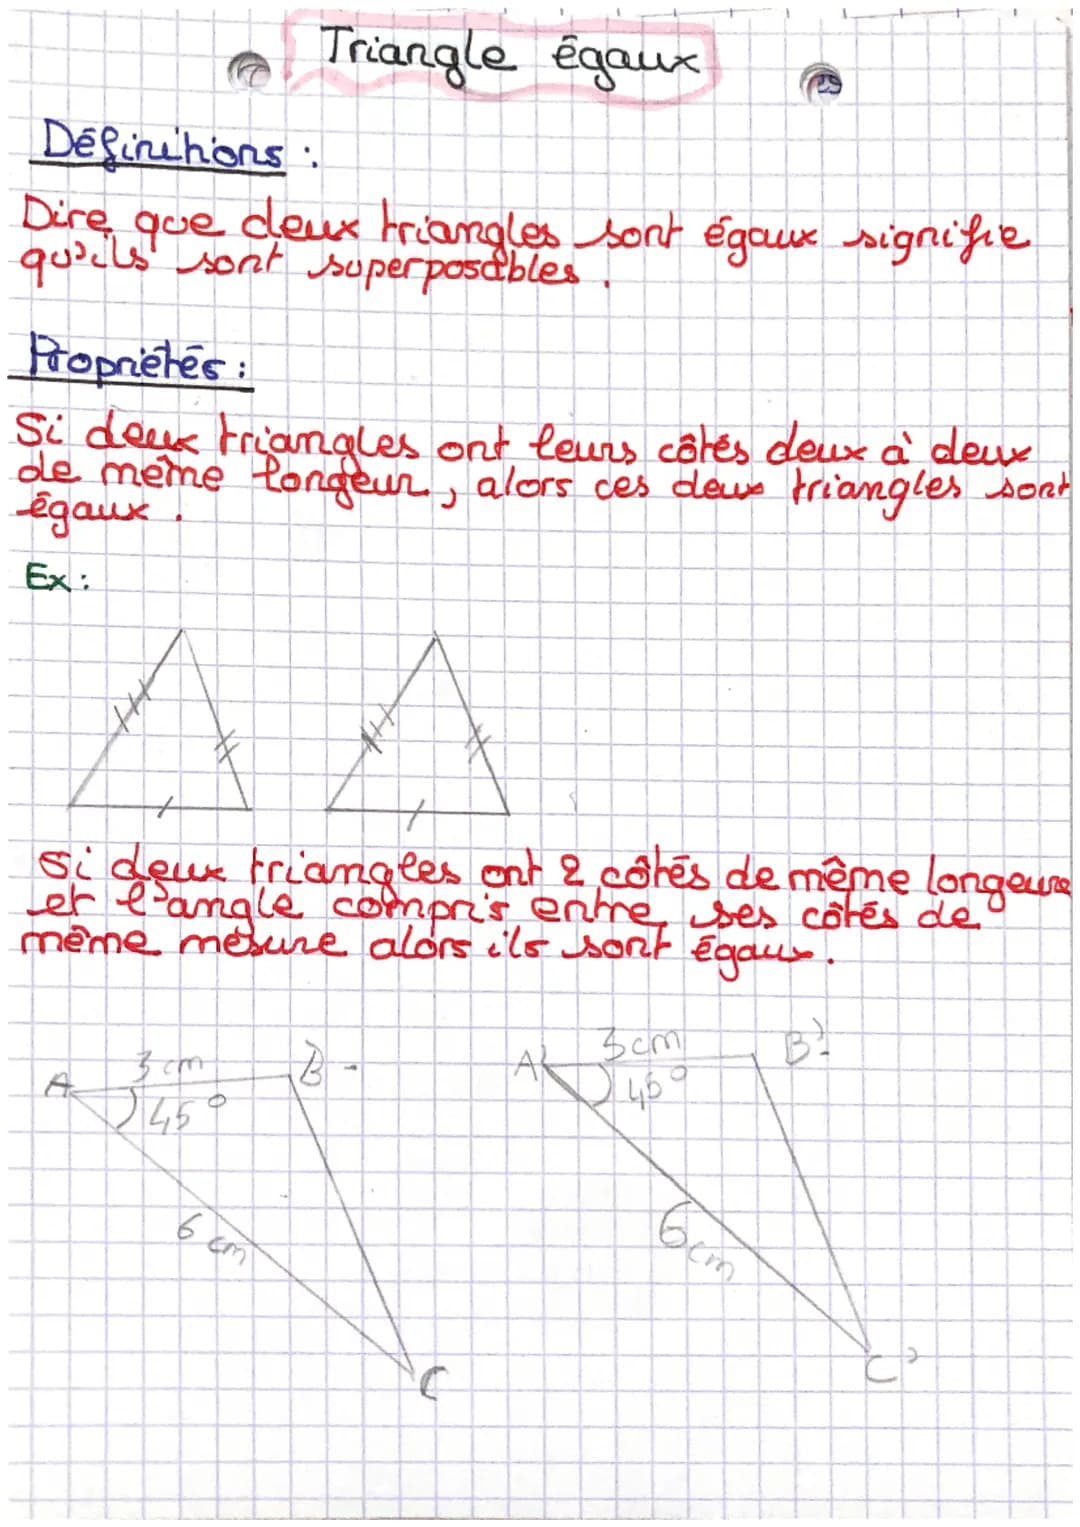 Triangle égaux
Définitions :
Dire que deux triangles sont égaux signifie
qu'ils sont superposables.
Propriétés :
Si deux triangles ont leurs côtés deux à deux
de même longeur, alors ces deux triangles sont
égaux.
Ex :
Si deux triangles ont 2 côtés de même longeure
et l'angle compris entre ses côtés de
même mesure alors ils sont égaux.
A 3 cm B
45°
6 cm
C
A' 3cm B'
45°
6cm
C'